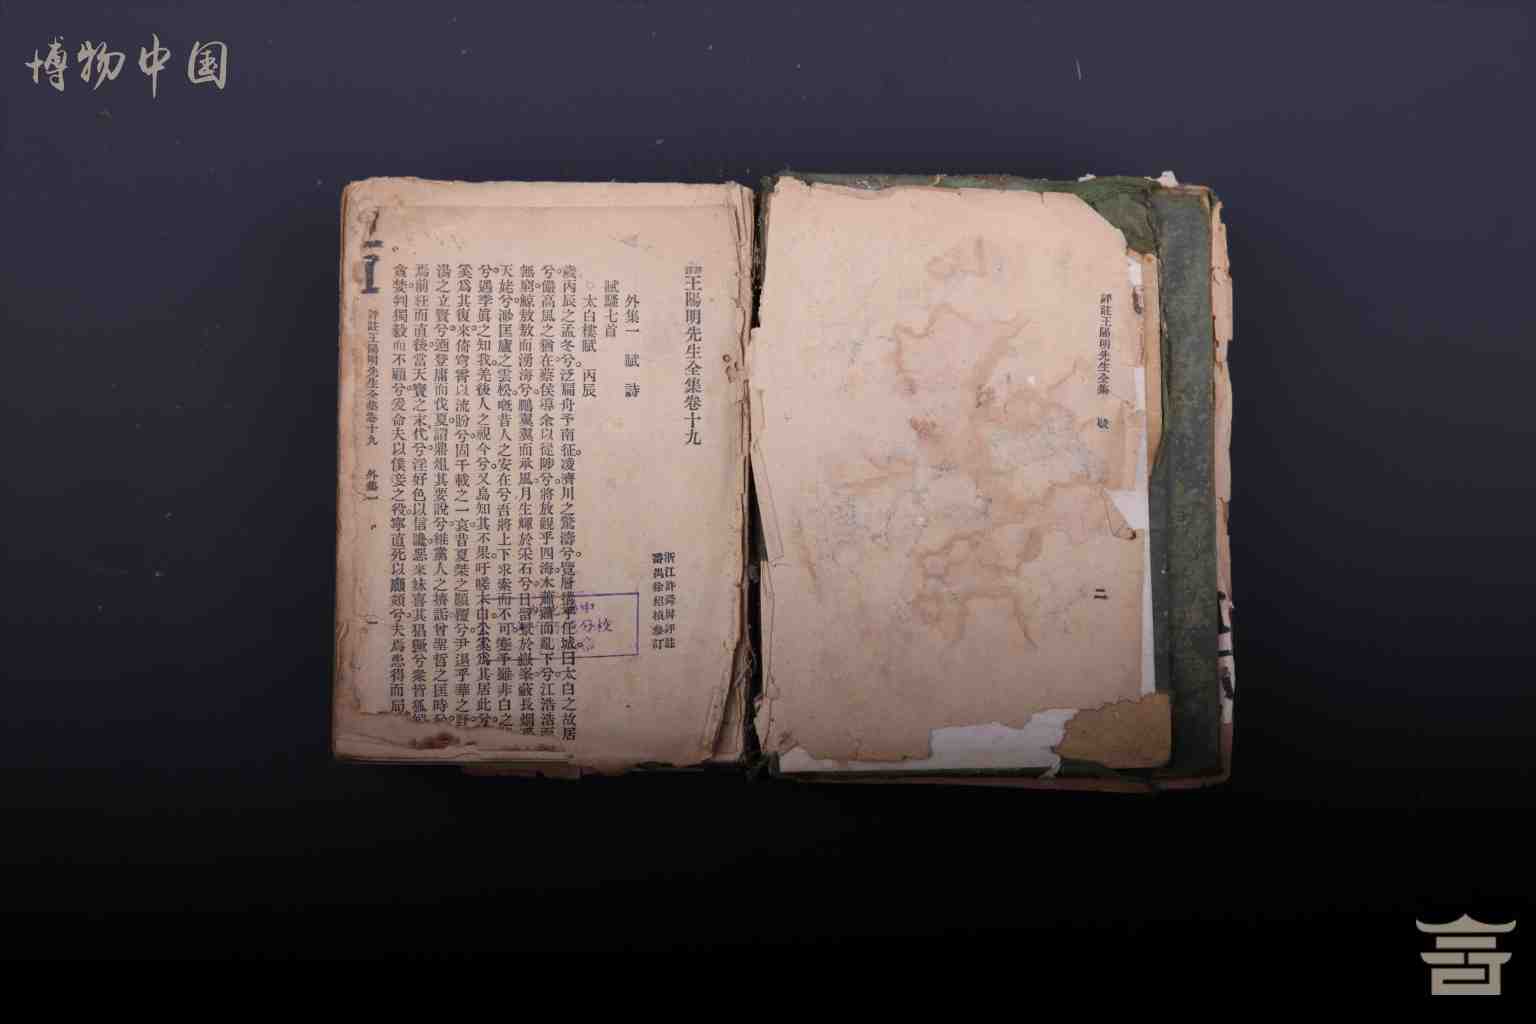 博物中国
評註王陽明先生全集
二
評註王陽明先生全集卷十九
浙江許舜屏評註
番禺徐紹楨參訂
外集一 賦 詩
賦騷七首
○太白樓賦 丙辰
歲丙辰之孟冬兮。泛扁舟予南征。凌濟川之驚濤兮。覽層構乎任城。曰太白之故居
兮。儼高風之猶在。蔡侯導余以從陟兮。將放觀乎四海。木蕭蕭而亂下兮。江浩浩而
無窮。鯨敖敖而湧海兮。鵬翼翼而承風。月生輝於采石兮。日留景於嶽峯。蔽長烟乎
天姥兮。渺匡廬之雲松。慨昔人之安在兮。吾將上下求索而不可。蹇予雖非白之
兮。遇季眞之知我。羌後人之視今兮。又烏知其不果。吁嗟太白公奚爲其居此兮。
奚爲其復來。倚穹霄以流盼兮。固千載之一哀。昔夏桀之顚覆兮。尹退乎莘之野。
湯之立賢兮。廼登庸而伐夏。謂鼎俎其要說兮。維黨人之擠詬。曾聖哲之匡時兮。
焉前枉而直後。當天寶之末代兮。淫好色以信讒。惡來妹喜其猖獗兮。衆皆狐
貪婪。判獨毅而不顧兮。爰命夫以僕妾之役。寧直死以顑頷兮。夫焉患得而局
評註王陽明先生全集卷十九 外集一 一
分校